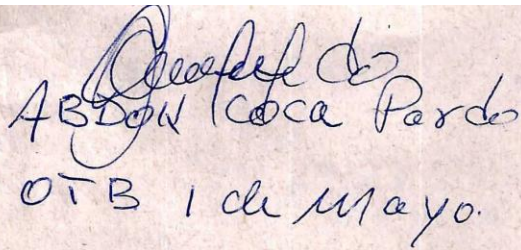 ABDON COCA Pardo
OTB 1 de Mayo.